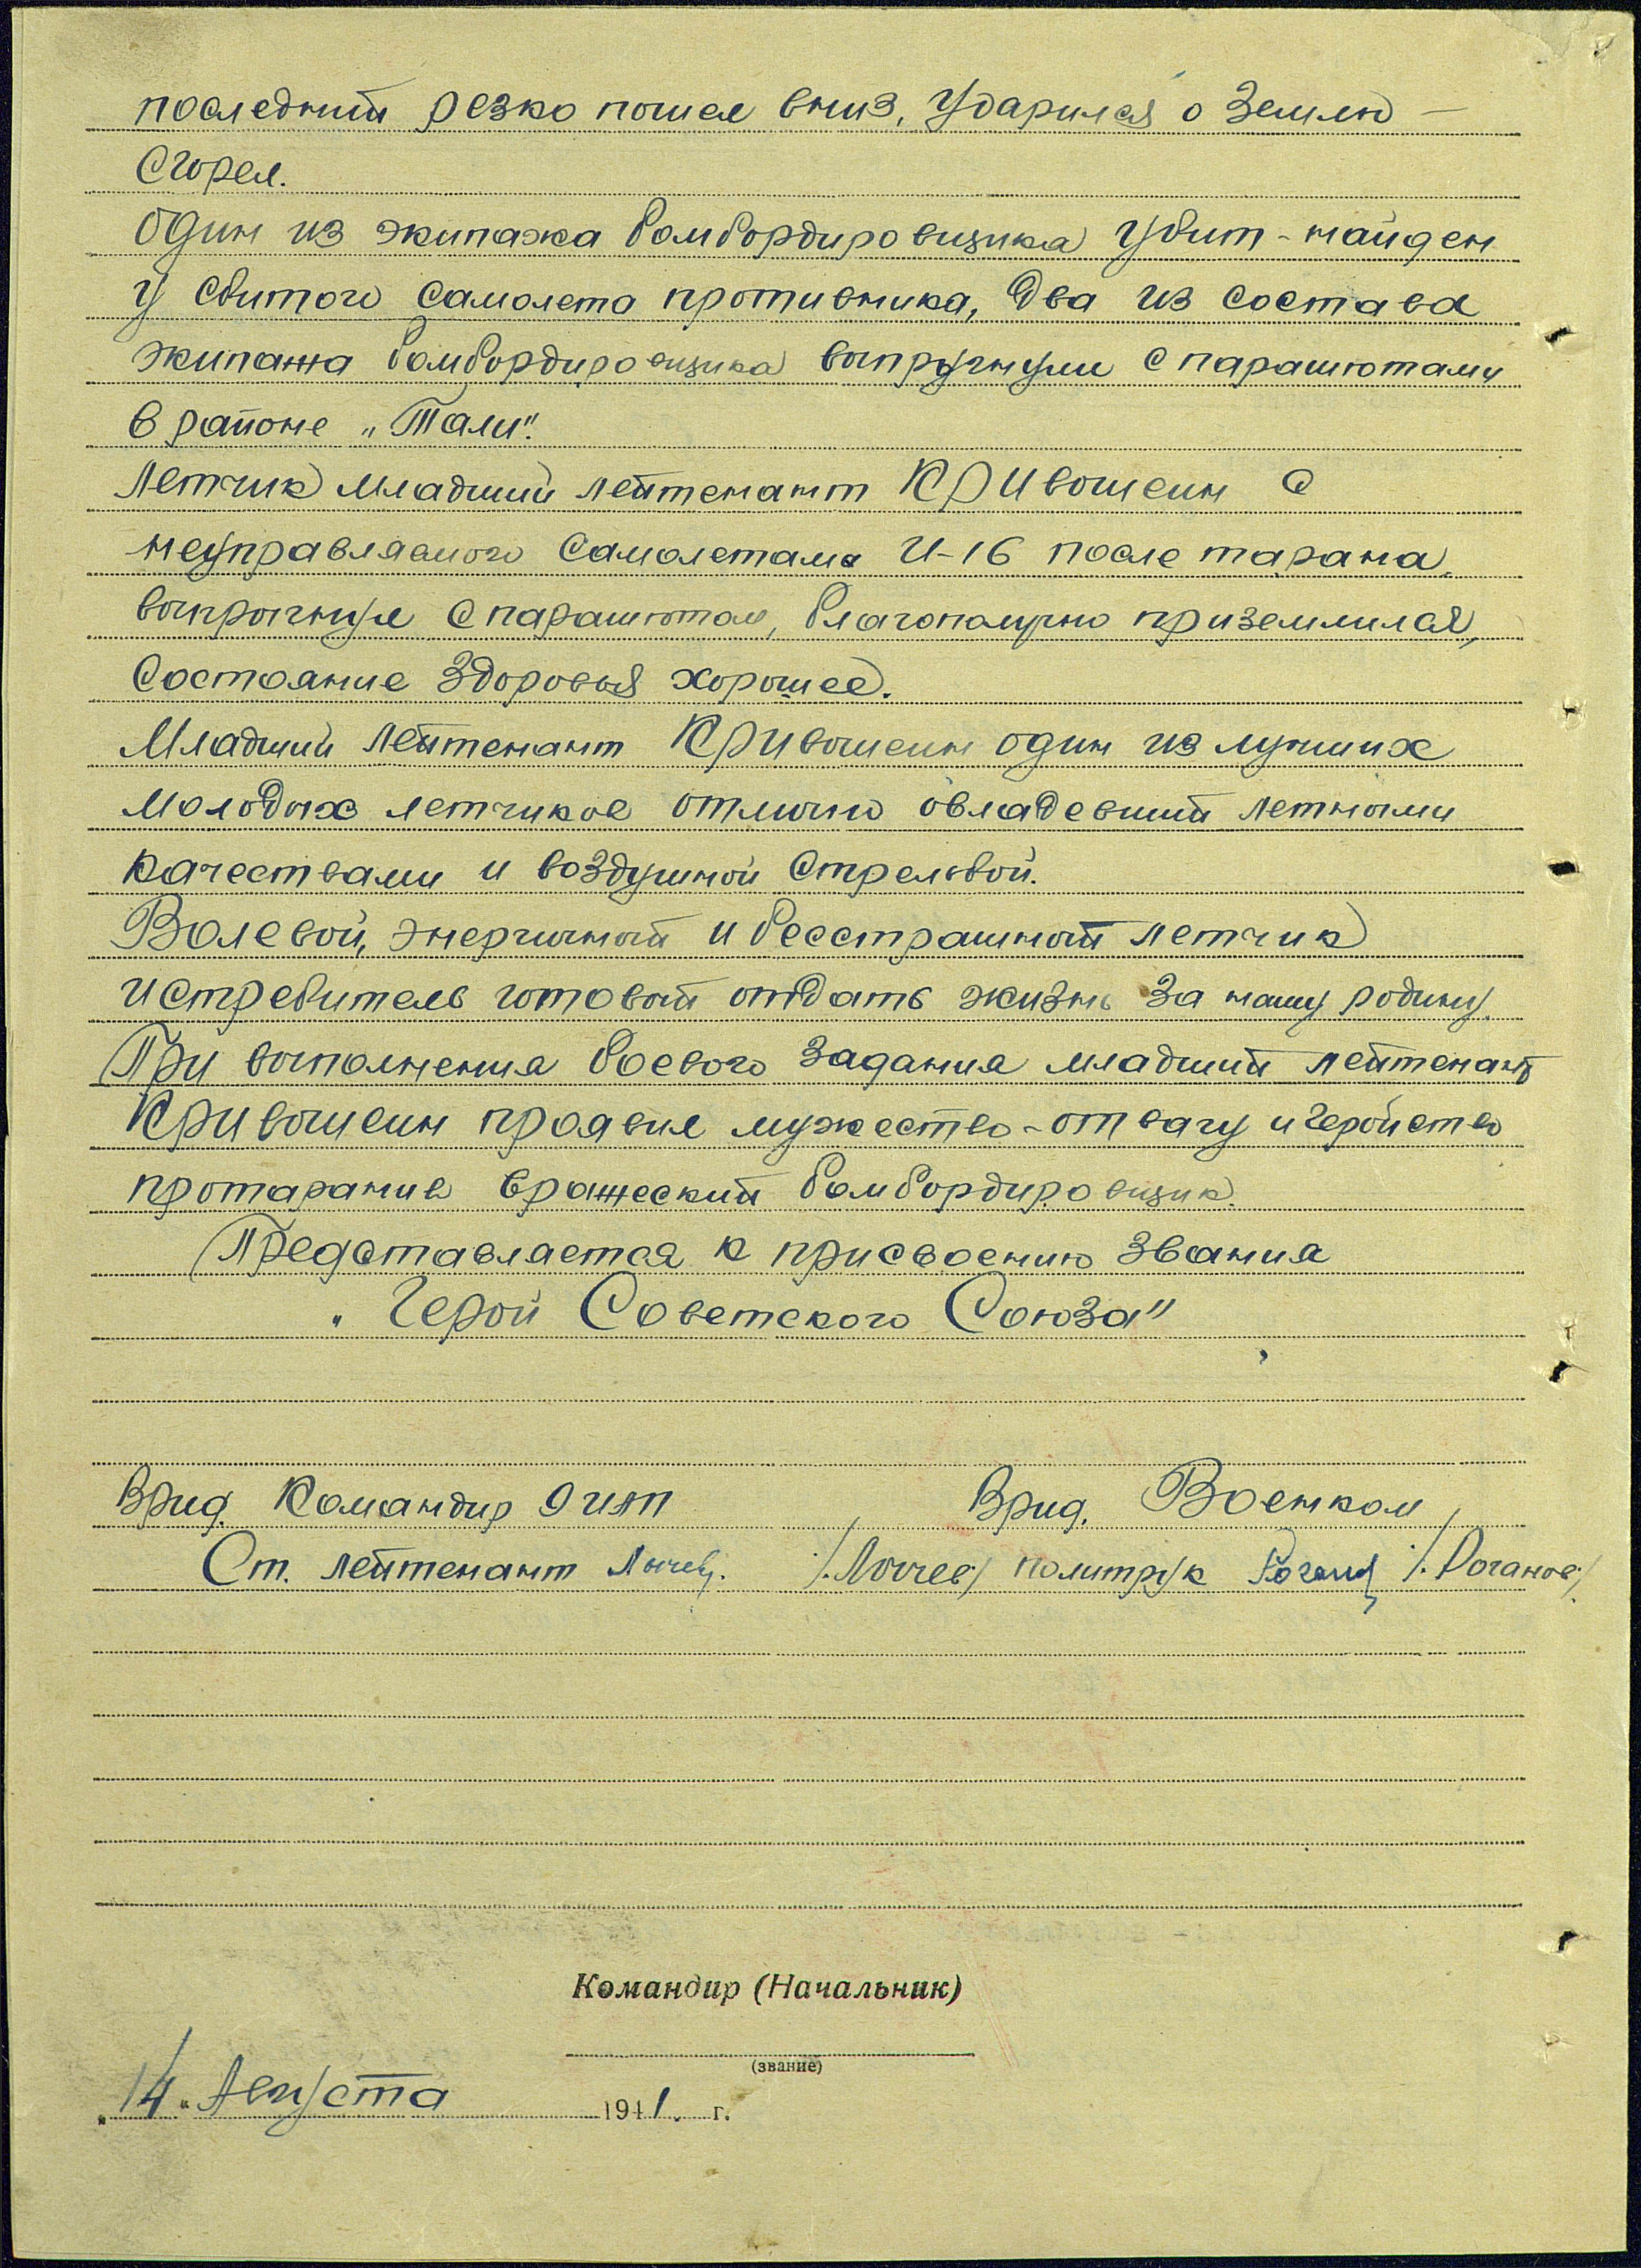 последний резко пошел вниз, ударился о землю –
сгорел.
Один из экипажа бомбордировщика убит – найден
у сбитого самолета противника, два из состава
экипажа бомбордировщика выпрыгнули с парашютами
в районе „Тали".
Летчик младший лейтенант Кривошеин с
неуправляемого самолетама И-16 после тарана,
выпрыгнул с парашютом, благополучно приземлился,
состояние здоровья хорошее.
Младший лейтенант Кривошеин один из лучших
молодых летчиков отлично овладевший летными
качествами и воздушной стрельбой.
Волевой, энергичный и бесстрашный летчик
истребитель готовый отдать жизнь за нашу родину.
При выполнения боевого задания младший лейтенант
Кривошеин проявил мужество – отвагу и геройство
протаранив вражеский бомбордировщик.
Представляется к присвоению звания
„Герой Советского Союза"
Врид. Командир 9 ИАП Врид. Военком
Ст. лейтенант /.Лычев/ политрук /.Роганов/
Командир (Начальник)
(звание)
„14" Августа 1941. г.